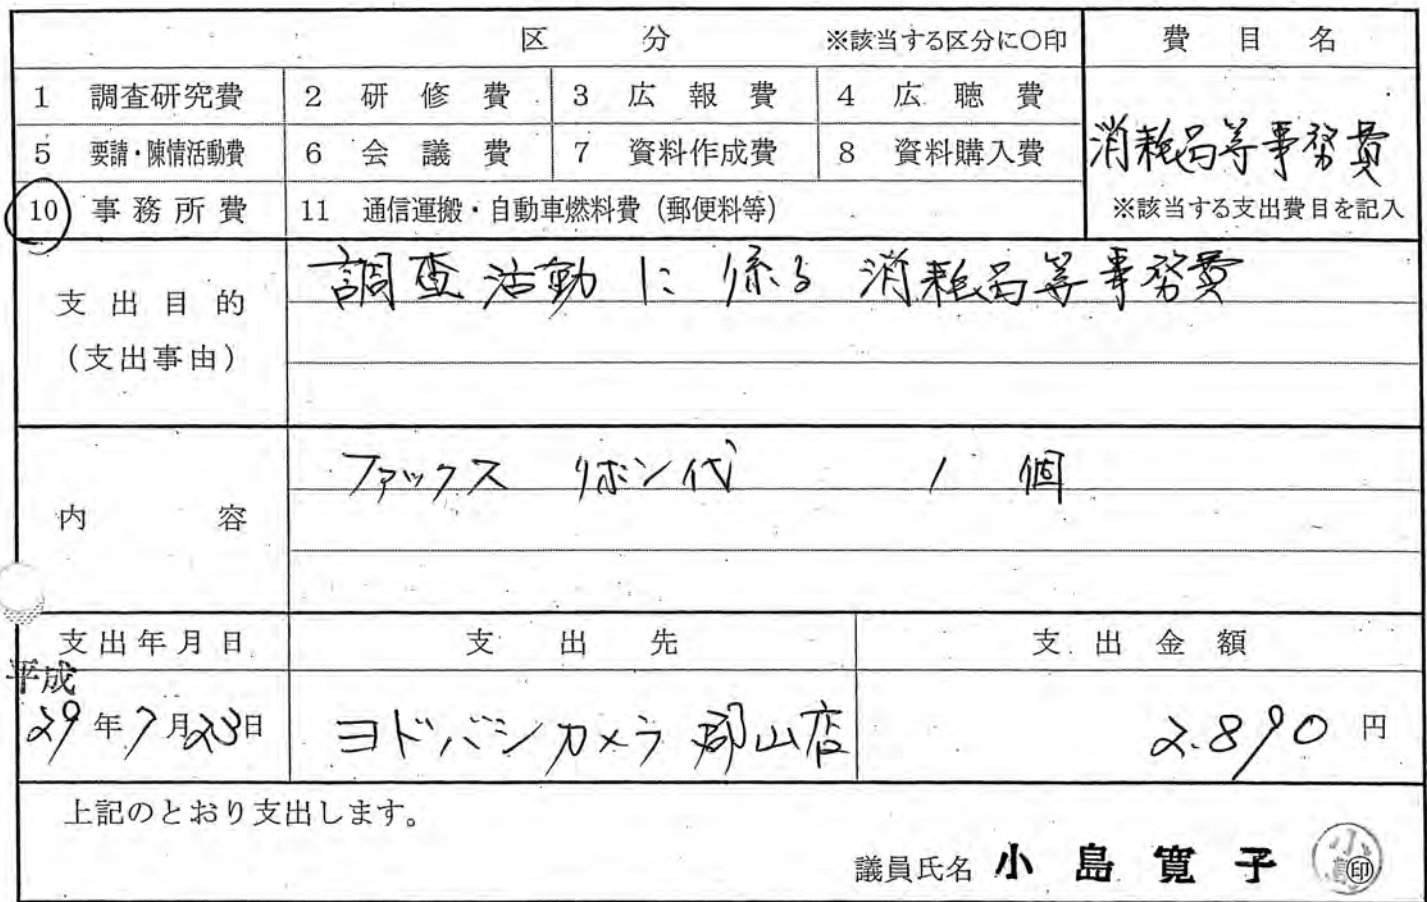 区 分 ※該当する区分に○印 費目名
1 調査研究費 2 研修費 3 広報費 4 広聴費
5 要請・陳情活動費 6 会議費 7 資料作成費 8 資料購入費
消耗品等事務費
10 事務所費 11 通信運搬・自動車燃料費(郵便料等) ※該当する支出費目を記入
支出目的
(支出事由)
調査活動に係る消耗品等事務費
内容
ファックス リボン代 1個
支出年月日 支出先 支出金額
平成
29年7月23日 ヨドバシカメラ郡山店 2.890円
上記のとおり支出します。
議員氏名 小島寛子 ㊞
小島